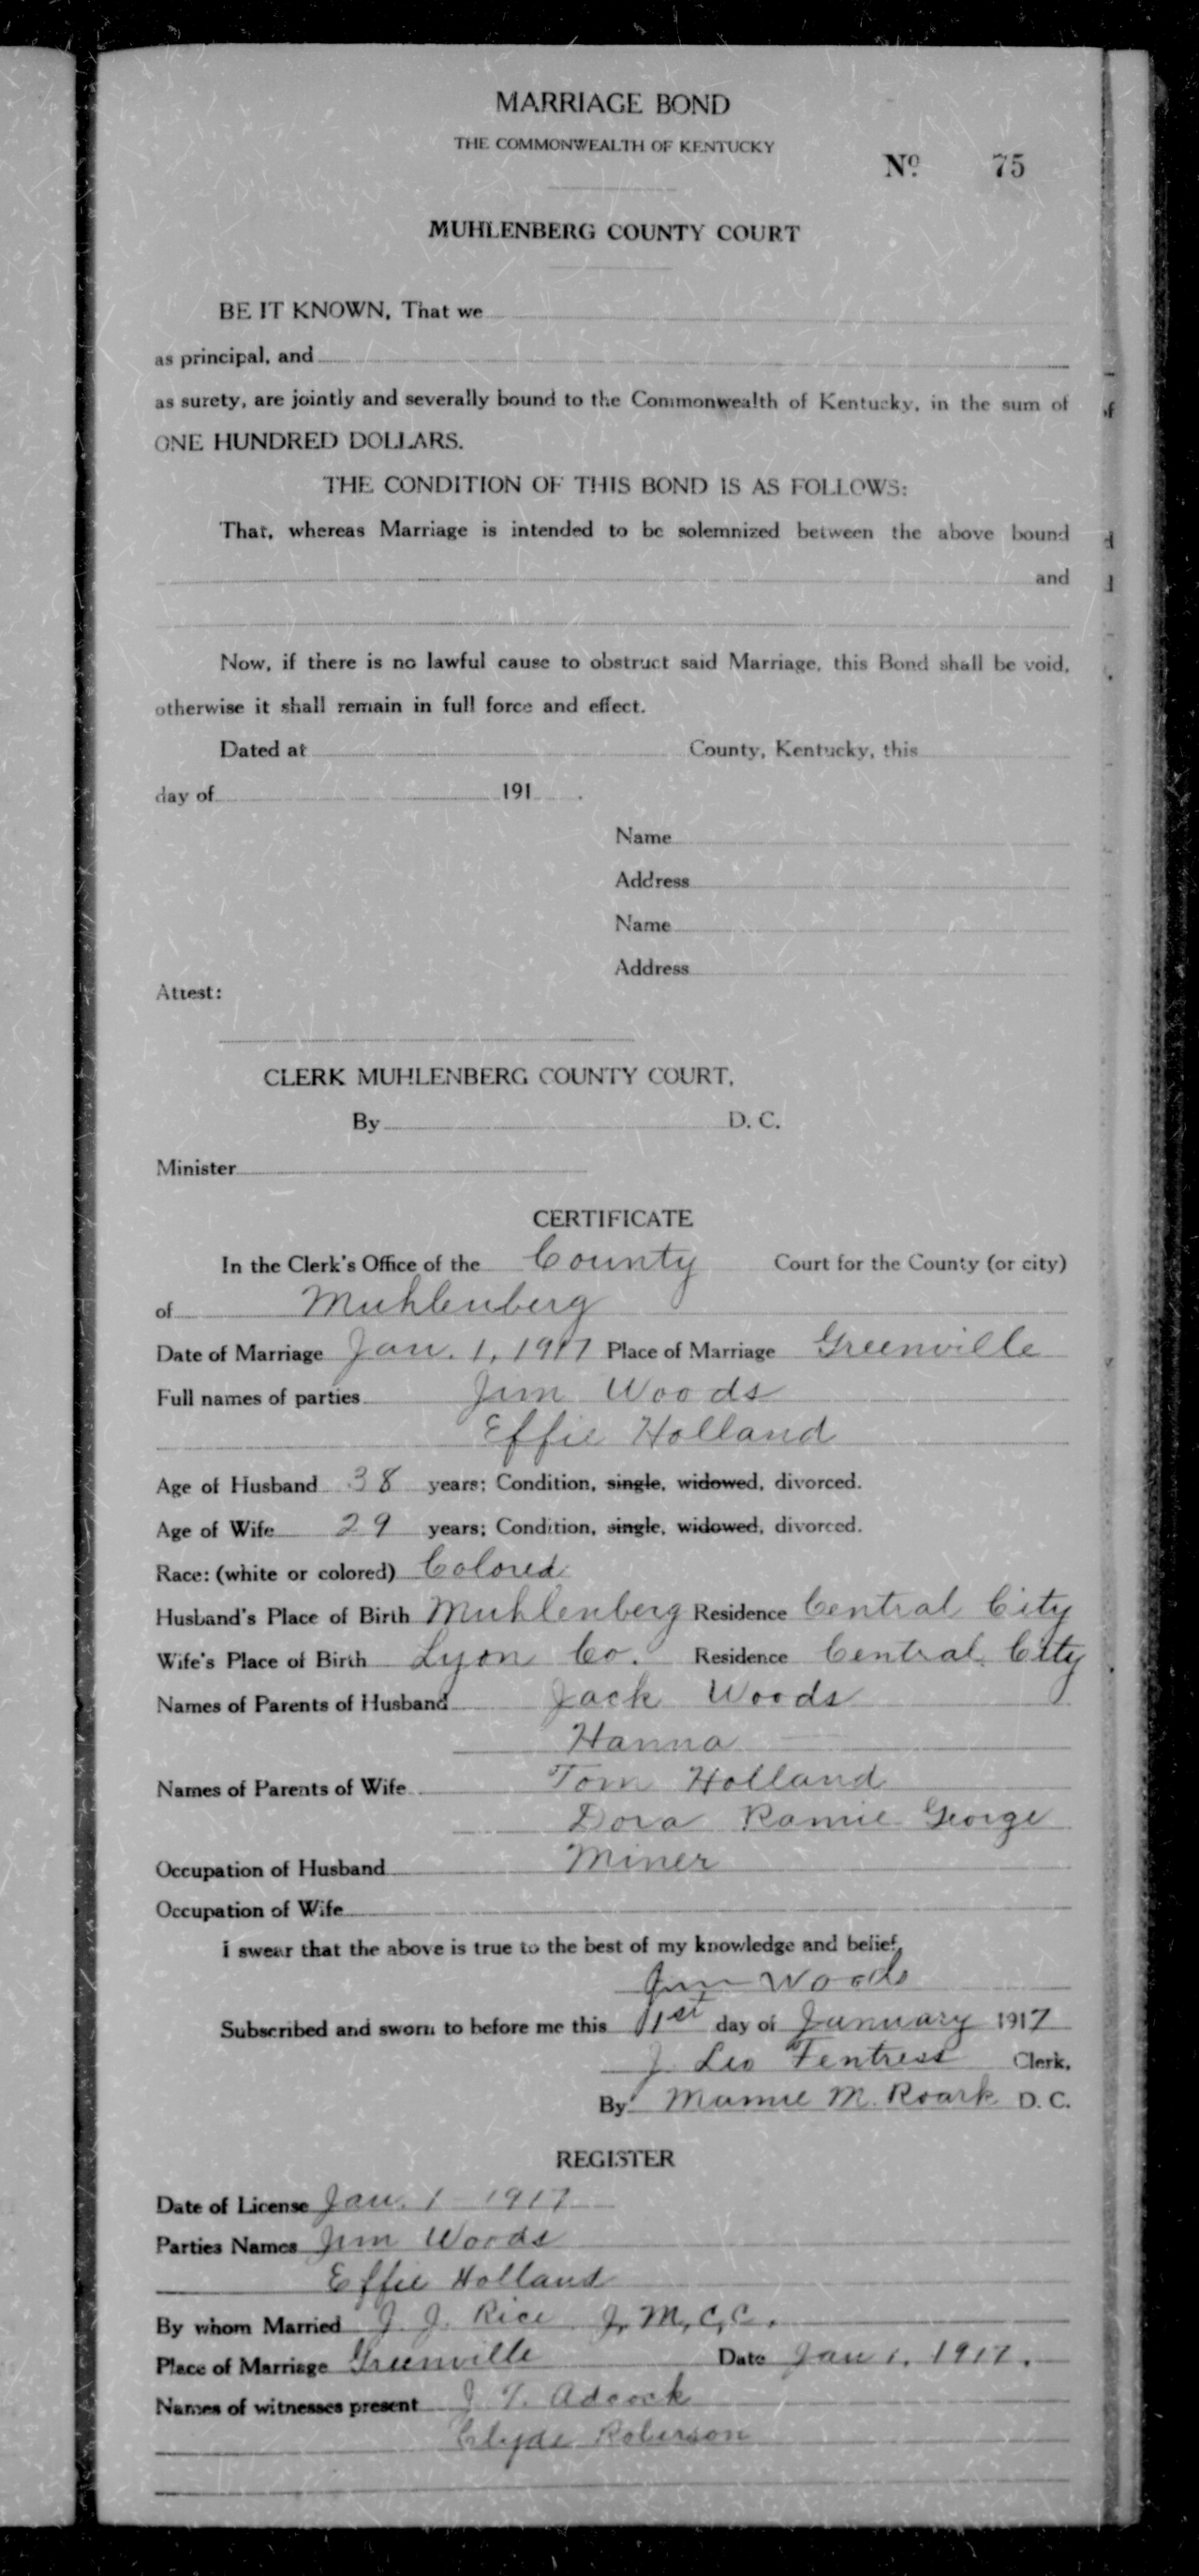 MARRIAGE BOND
THE COMMONWEALTH OF KENTUCKY
No. 75
MUHLENBERG COUNTY COURT
BE IT KNOWN, That we
as principal, and
as surety, are jointly and severally bound to the Commonwealth of Kentucky, in the sum of
ONE HUNDRED DOLLARS.
THE CONDITION OF THIS BOND IS AS FOLLOWS:
That, whereas Marriage is intended to be solemnized between the above bound
and
Now, if there is no lawful cause to obstruct said Marriage, this Bond shall be void,
otherwise it shall remain in full force and effect.
Dated at County, Kentucky, this
day of 191 .
Name
Address
Name
Address
Attest:
CLERK MUHLENBERG COUNTY COURT,
By D. C.
Minister
CERTIFICATE
In the Clerk's Office of the County Court for the County (or city)
of Muhlenberg
Date of Marriage Jan. 1, 1917 Place of Marriage Greenville
Full names of parties Jim Woods
Effie Holland
Age of Husband 38 years; Condition, single, widowed, divorced.
Age of Wife 29 years; Condition, single, widowed, divorced.
Race: (white or colored) Colored
Husband's Place of Birth Muhlenberg Residence Central City
Wife's Place of Birth Lyon Co. Residence Central City
Names of Parents of Husband Jack Woods
Hanna
Names of Parents of Wife Tom Holland
Dora George
Occupation of Husband Miner
Occupation of Wife
I swear that the above is true to the best of my knowledge and belief,
Jim Woods
Subscribed and sworn to before me this 1st day of January 1917
J Leo Fentress Clerk,
By Mamie M. Roark D. C.
REGISTER
Date of License Jan. 1 1917
Parties Names Jim Woods
Effie Holland
By whom Married J. J. Rice J. M. C. C.
Place of Marriage Greenville Date Jan 1, 1917.
Names of witnesses present J. T. Adcock
Clyde Roberson